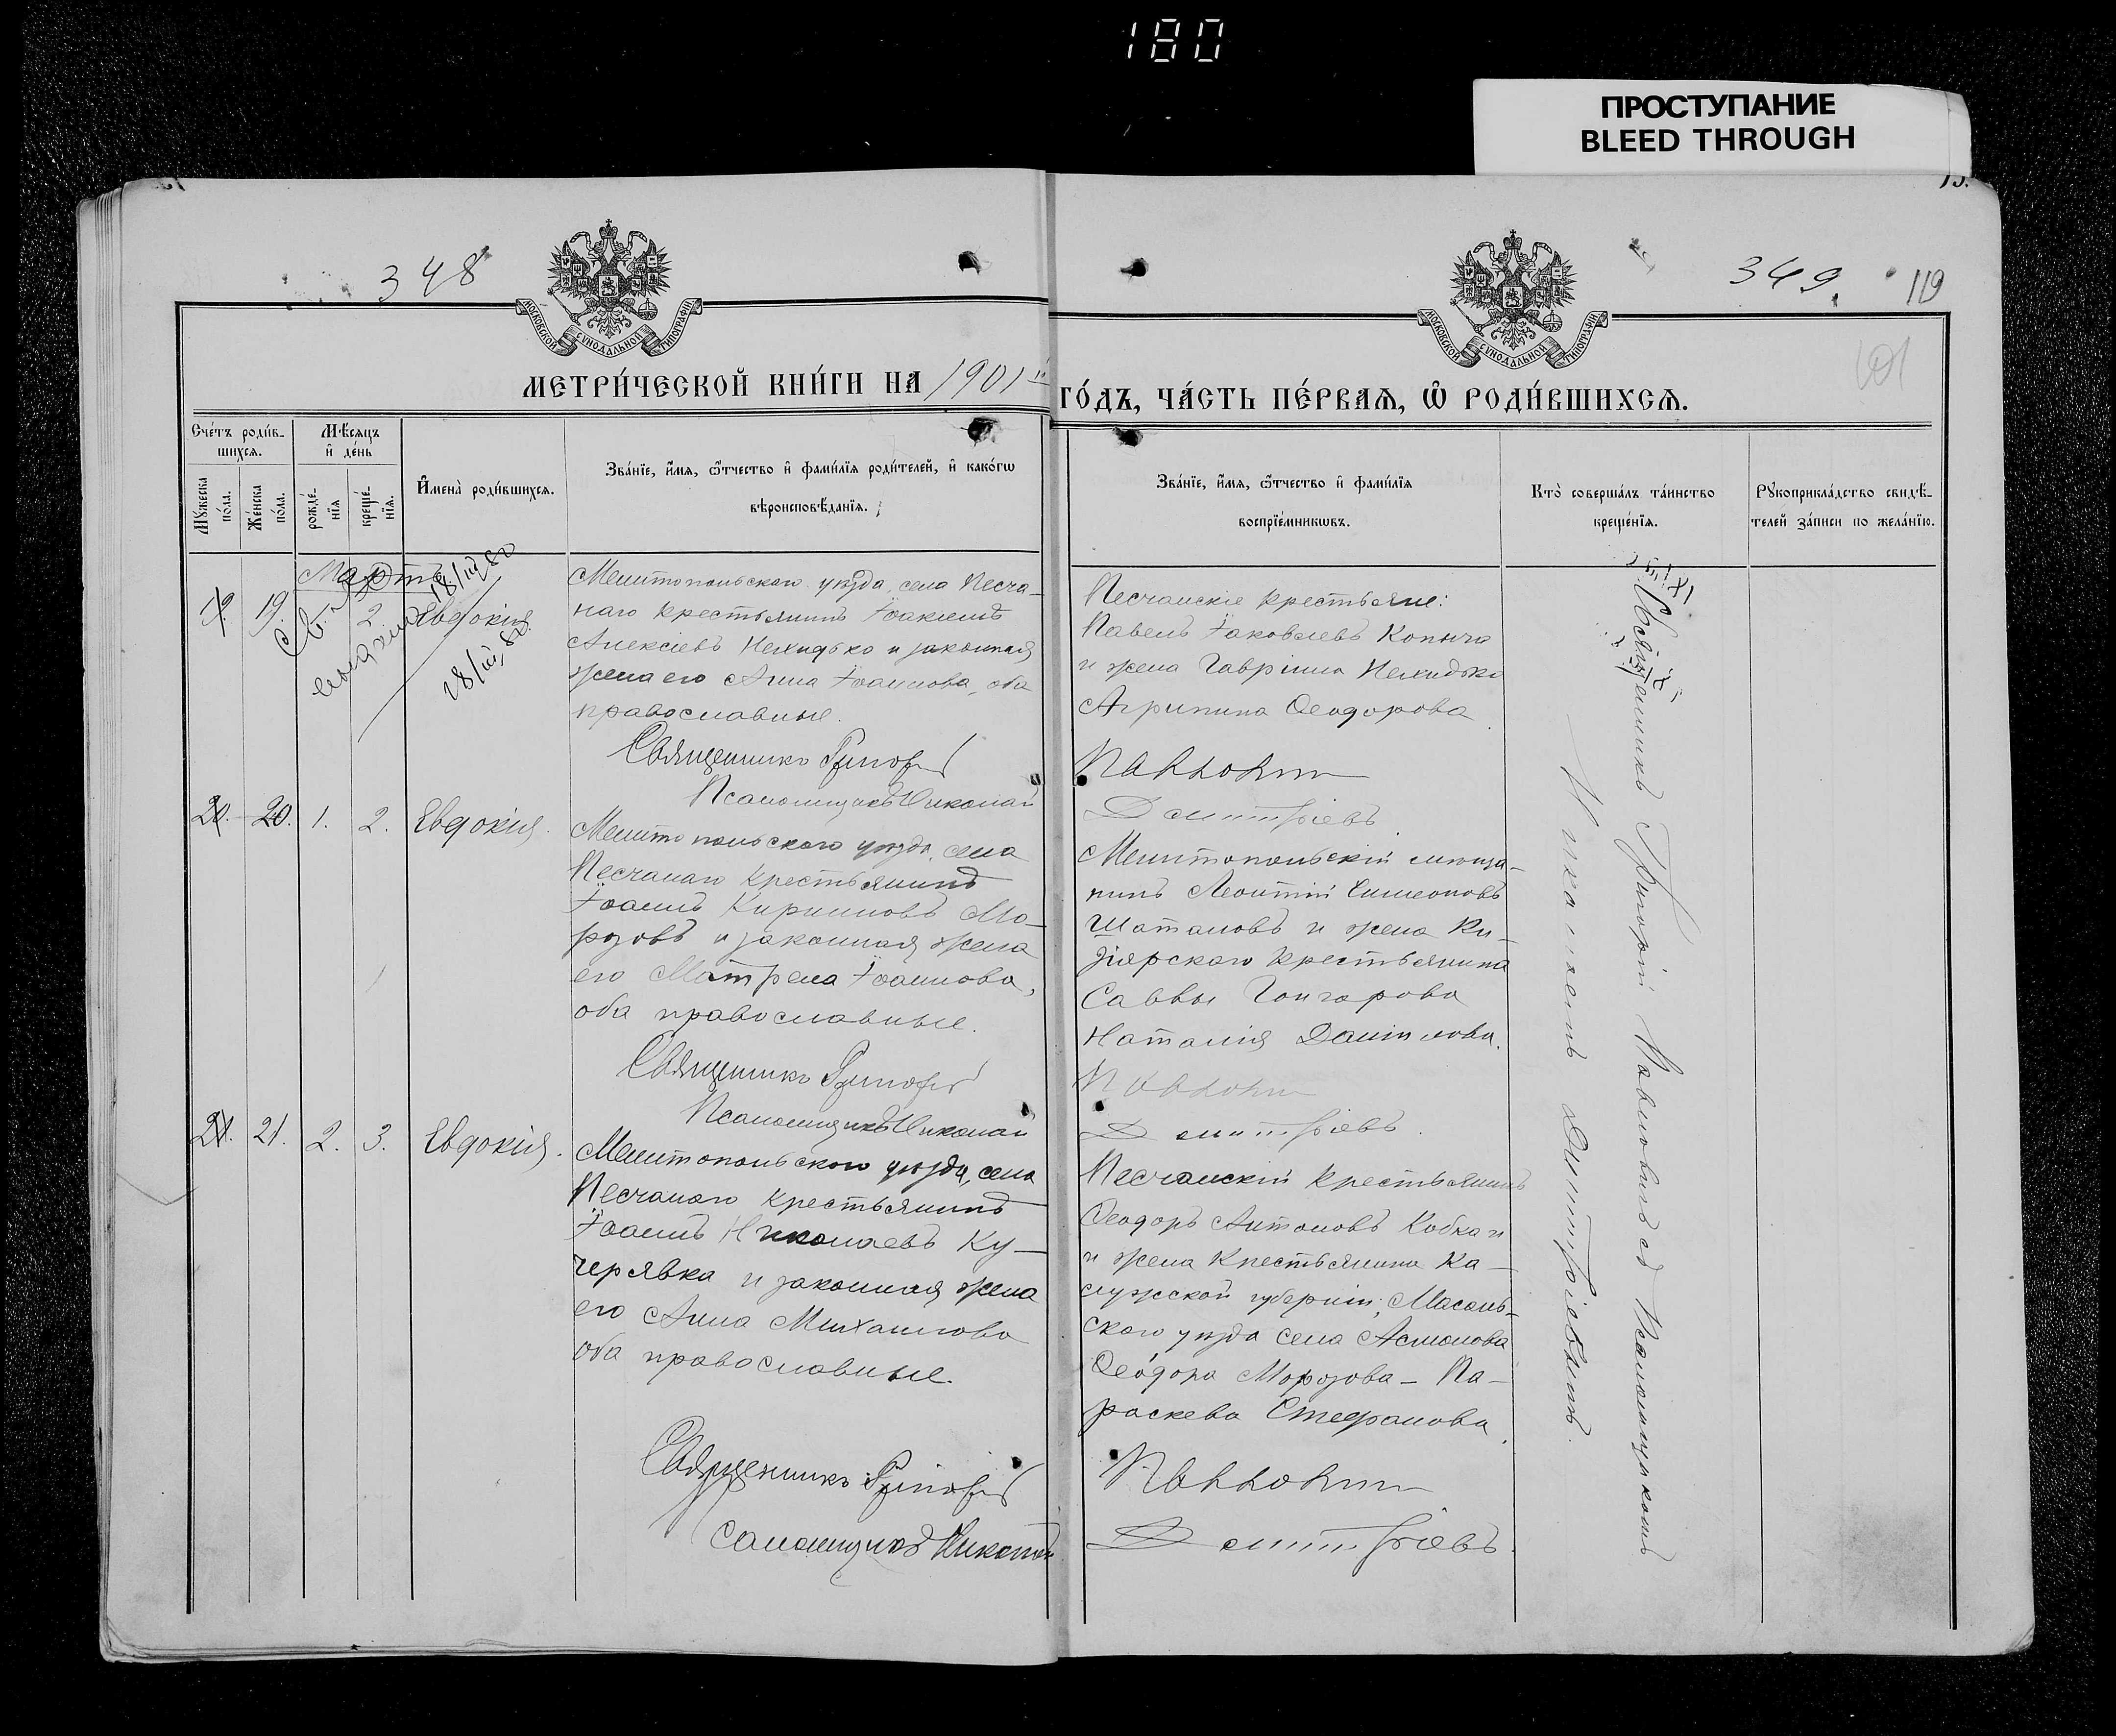 180
ПРОСТУПАНИЕ
BLEED THROUGH
348
349
119
101
МОСКОВСКОЙ СѴНОДАЛЬНОЙ ТИПОГРАФІИ
МОСКОВСКОЙ СѴНОДАЛЬНОЙ ТИПОГРАФІИ
МЕТРИ́ЧЕСКОЙ КНИ́ГИ НА 1901
ГО́ДЪ, ЧА́СТЬ ПЕ́РВАѦ, Ѡ҆ РОДИ́ВШИХСѦ.
Сче́тъ роди́в-
шихся.
Мѣ́сяцъ
и҆ де́нь
Му́жеска
по́ла.
Же́нска
по́ла.
рожде́-
нїя
креще́-
нїя.
И҆мена̀ роди́вшихся.
Зва́нїе, и҆́мя, ѻ҆́тчество и҆ фами́лїя роди́телей, и҆ како́гѡ
вѣроисповѣ́данїя.
Зва́нїе, и҆́мя, ѻ҆́тчество и҆ фами́лїя
воспрїе́мникѡвъ.
Кто̀ соверша́лъ та́инство
креще́нїя.
Рукоприкла́дство свидѣ́-
телей за́писи по жела́нїю.
Мартъ
19. 2. Евдокія
18/III 80
28/III,80
Мелитопольскаго уѣзда, села Песча-
наго крестьянинъ Іоакимъ
Алексіевъ Нехидько и законная
жена его Анна Іоаннова, оба
православные.
Священникъ Григорій
Псаломщикъ Николай
Песчанскіе крестьяне:
Павелъ Іаковлевъ Копыча
и жена Гавріила Нехидько
Агрипина Ѳеодорова
Павловичъ
Димитріевъ
20. 20. 1. 2. Евдокія.
Мелитопольскаго уѣзда, села
Песчанаго крестьянинъ
Іоаннъ Кирилловъ Мо-
розовъ и законная жена
его Матрена Іоаннова,
оба православные.
Священникъ Григорій
Псаломщикъ Николай
Мелитопольскій мѣща-
нинъ Леонтій Симеоновъ
Шаталовъ и жена Ки-
зіярскаго крестьянина
Саввы Гончарова
Наталія Даніилова.
Павловичъ
Димитріевъ.
21. 21. 2. 3. Евдокія.
Мелитопольскаго уѣзда, села
Песчанаго крестьянинъ
Іоаннъ Николаевъ Ку-
черявка и законная жена
его Анна Михаилова
оба православные.
Священникъ Григорій
Псаломщикъ Николай
Песчанскій крестьянинъ
Ѳеодоръ Антоновъ Кобка и
и жена крестьянина Ка-
лужской губерніи, Масаль-
скаго уѣзда села Асмолова
Ѳеодора Морозова - Па-
раскева Стефанова.
Павловичъ
Димитріевъ.
Священникъ Григорій Павловичъ съ Псаломщикомъ
Николаемъ Димитріевымъ.